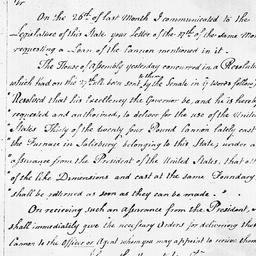 Sir
On the 26th of last Month I communicated to the
Legislature of this State, your letter of the 19th of the same Mon
requesting a Loan of the Cannon mentioned in it.
The House of Assembly yesterday concurred in a Resolution
which had on the 27th Ult. been sent to them by the Senate in ye Words follow:g
"Resolved that his Excellency the Governor be, and he is hereby
requested and authorised, to deliver for the use of the United
States Thirty of the twenty four Pound Cannon lately cast
the Furnace in Salisbury belonging to this State, under a
assurance from the President of the United States, that o
of the like Dimensions and cast at the same Foundary
"shall be returned as soon as they can be made."
On receiving such an assurance from the President,
shall immediately give the necessary Orders for delivering th
Cannon to the Officer or Agent whom you may appoint to receive them